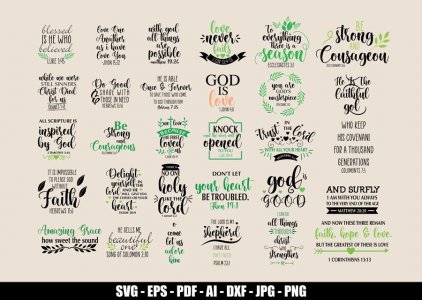 blessed
IS HE WHO
believed
LUKE 1:45
Love One
Another as
i have Love
You
with god
all things
are
possible
matthew 19:26
Love
never
fails
To
everything
there is a
season
ECCLESIASTES 3:1
BE
STRONG
and
Courageous
while we were
still SINNERS
Christ Died
for us
Do Good
& SHARE
WITH THOSE
IN NEED
HEBREWS 13:16
HE IS ABLE
Once & Forever
TO SAVE THOSE WHO COME
TO GOD THROUGH HIM
GOD
IS
love
you are
GOD'S
masterpiece
He Is The
Faithful
god
WHO KEEP
HIS COVENANT
FOR A THOUSAND
GENERATIONS
ALL SCRIPTURE IS
inspired
by God
Be
Strong
and
Courageous
we love
BECAUSE
he first
loved
us
KNOCK
and the door will be
opened
to you
Trust in the
LORD
WITH ALL YOUR HEART
IT IS IMPOSSIBLE
TO PLEASE GOD
WITHOUT
Faith
HEBREWS 11:6
Delight
yourself
in the
Lord
NO ONE
holy
like the
lord
DON'T LET
your heart
BE TROUBLED.
John 14:1
god
is
GOOD
AND SURFLY
I AM WITH YOU ALWAYS
TO THE VERY END OF THE AGE
MATTHEW 28:20
Amazing Grace
how sweet the sound
HE CALLS ME
beautiful
one
SONG OF SOLOMON 2:10
o
come
let us
adore
him
THE LORD IS MY
Shepherd
I SHALL NOT WANT
PSALM 23:1
I CAN DO
all things
through
christ
WHO
strengthens
AND NOW THESE THREE REMAIN
faith, hope & love.
BUT THE GREATEST OF THESE IS LOVE
1 CORINTHIANS 13:13
SVG - EPS - PDF - AI - DXF - JPG - PNG